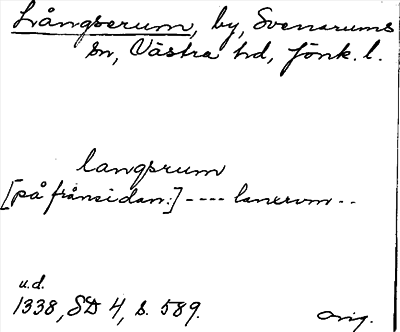 Långserum, by, Svenarums
sn, Västra hd, Jönk. l.
langsrum
[på frånsidan:] ---- lanervm --
u.d.
1338, SD 4, s. 589.
orig.